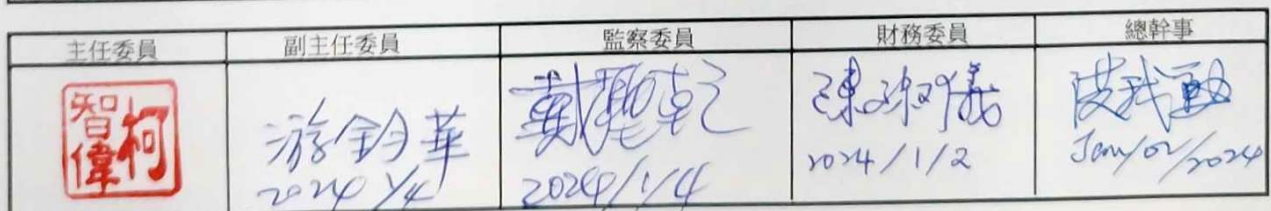 主任委員 副主任委員 監察委員 財務委員 總幹事
柯智偉
游鈞華
2024 1/4
戴
2024/1/4
陳淑儀
2024/1/2
洪
Jan/02/2024